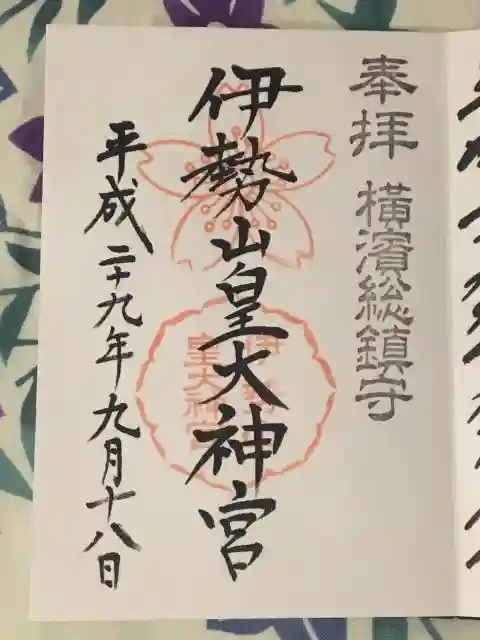 奉拝 横濱総鎮守
伊勢山皇大神宮
伊勢山
皇大神宮
平成二十九年九月十八日